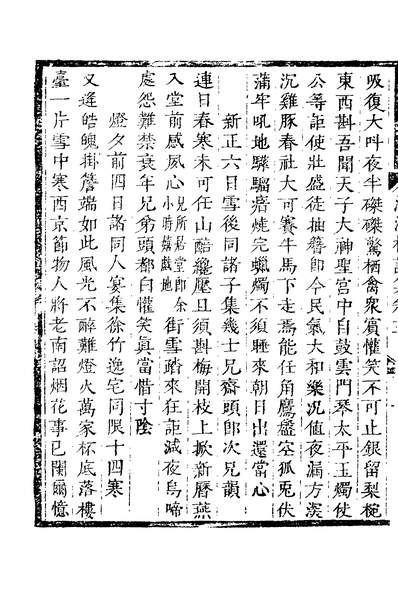 吸復大叫夜半磔磔驚栖禽衆賓懽笑不可止銀留梨椀
東西斟吾聞天子大神聖宮中自鼓雲門琴太平玉燭使
公等詎使壯盛徒抽簪即今民氣大和樂況値夜漏方深
沉雞豚春社大可賽牛馬下走焉能任角鷹盤空狐兎伏
蒲牢吼地驊騮瘖燒完蠟燭不須睡來朝日出還當心
新正六日雪後同諸子集幾士兄齋頭即次兄韻
連日春寒未可任山醅纔壓且須斟梅開枝上掀新曆燕
入堂前感夙心兄所居堂即余小時嬉戲地街雪踏來在詎減夜烏啼
處怨難禁衰年兄弟頭都白懽笑眞當惜寸陰
燈夕前四日諸同人宴集徐竹逸宅同限十四寒
又逢皓魄掛簷端如此風光不醉難燈火萬家杯底落樓
臺一片雪中寒西京節物人將老南詔烟花事已闌爾憶